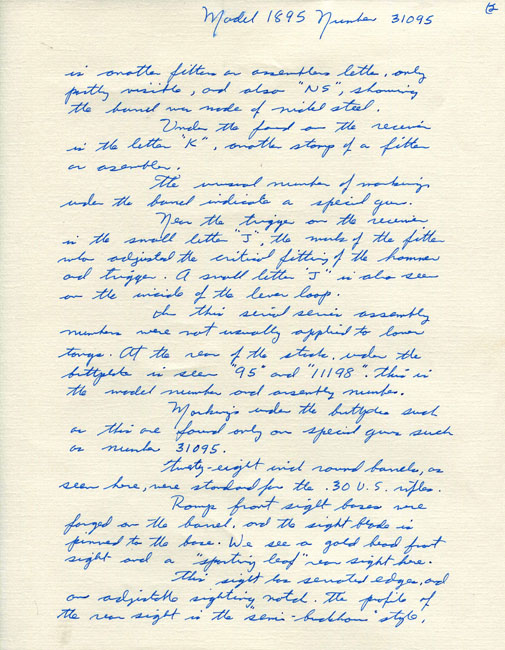 Model 1895 Number 31095
is another fitters or assemblers letter, only
partly visible, and also "NS", showing
the barrel was made of nickel steel.
Under the forend on the receiver
is the letter "K", another stamp of a fitter
or assembler.
The unusual number of markings
under the barrel indicate a special gun.
Near the trigger on the receiver
is the small letter "J", the mark of the fitter
who adjusted the critical fitting of the hammer
and trigger. A small letter "J" is also seen
on the inside of the lever loop.
In this serial series assembly
numbers were not usually applied to lower
tangs. At the rear of the stock, under the
buttplate is seen "95" and "11198". This is
the model number and assembly number.
Markings under the buttplate such
as this are found only on special guns such
as number 31095.
Twenty-eight inch round barrels, as
seen here, were standard for the .30 U.S. rifles.
Ramp front sight bases were
forged on the barrel, and the sight blade is
pinned to the base. We see a gold bead front
sight and a "sporting leaf" rear sight here.
This sight has serrated edges, and
an adjustable sighting notch. The profile of
the rear sight is the "semi-buckhorn" style,